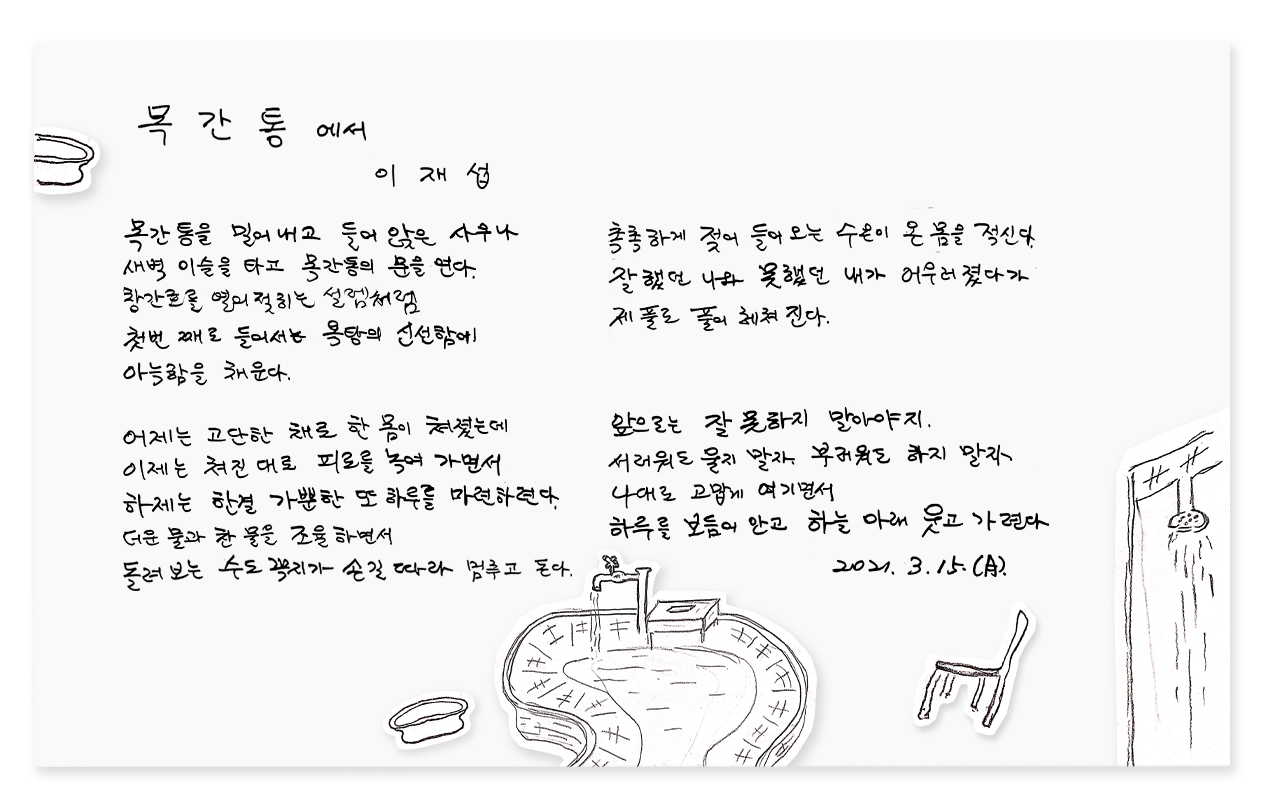 목간통에서
이재섭
목간통을 밀어내고 들어 앉은 사우나
새벽 이슬을 타고 목간통의 문을 연다.
창간호를 열어젖히는 설렘처럼
첫번 째로 들어서는 욕탕의 신선함이
아늑함을 채운다.
어제는 고단한 채로 한 몸이 쳐졌는데
이제는 쳐진 대로 피로를 녹여 가면서
하제는 한결 가뿐한 또 하루를 마련하련다.
더운 물과 찬 물을 조율하면서
돌려 보는 수도 꼭지가 손길 따라 멈추고 돈다.
촉촉하게 젖어 들어 오는 수온이 온 몸을 적신다.
잘했던 나와 못했던 내가 어우러졌다가
제 풀로 풀어 헤쳐 진다.
앞으로는 잘 못하지 말아야지.
서러워도 울지 말자. 부러워도 하지 말자
나대로 고맙게 여기면서
하루를 보듬어 안고 하늘 아래 웃고 가련다
2021. 3. 15. (A).